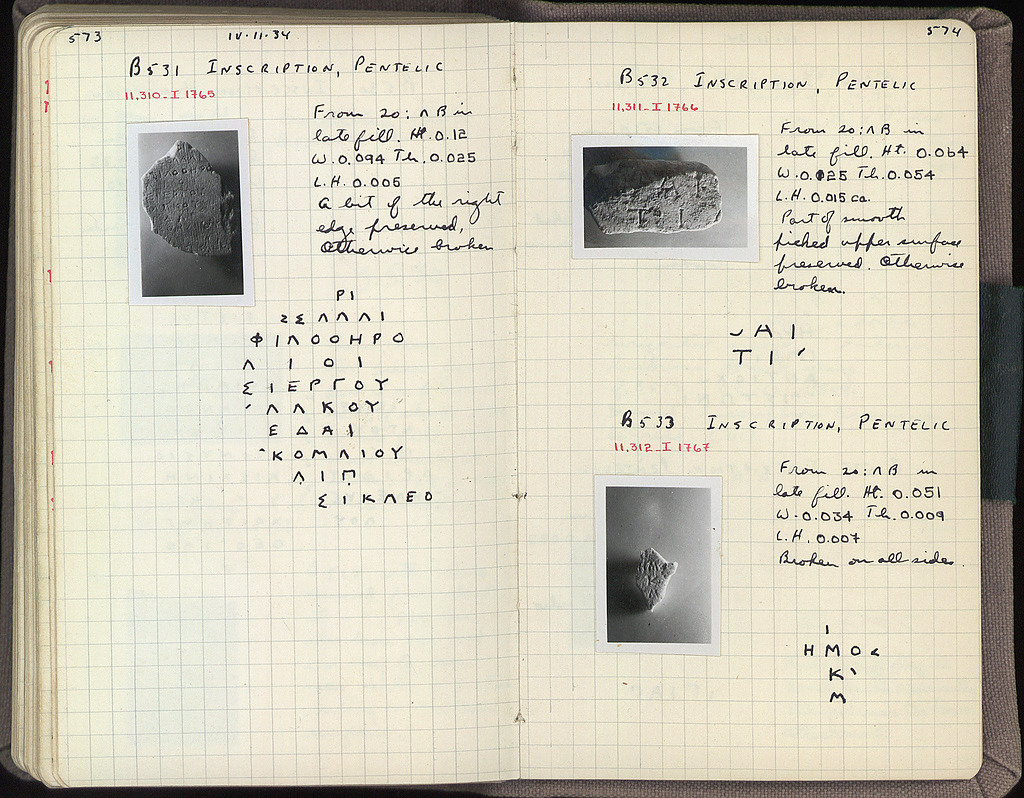 573
IV·11·34
B531 INSCRIPTION, PENTELIC
11,310 - I 1765
From 20:ΛB in
late fill. Ht. 0.12
W. 0.094 Th. 0.025
L.H. 0.005
A bit of the right
edge preserved,
Otherwise broken
ΡΙ
ΣΕΛΛΛΙ
ΦΙΛΟΟΗΡΟ
Λ Ι Ο Ι
ΣΙΕΡΓΟΥ
ΛΛΚΟΥ
ΕΔΑΙ
ΚΟΜΛΙΟΥ
ΛΙΠ
ΣΙΚΛΕΟ
574
B532 INSCRIPTION, PENTELIC
11,311 - I 1766
From 20:ΛB in
late fill. Ht. 0.064
W. 0.125 Th. 0.054
L.H. 0.015 ca.
Part of smooth
picked upper surface
preserved. Otherwise
broken.
Α Ι
Τ Ι
B533 INSCRIPTION, PENTELIC
11,312 - I 1767
From 20:ΛB in
late fill. Ht. 0.051
W. 0.034 Th. 0.009
L.H. 0.007
Broken on all sides.
Ι
ΗΜΟΣ
Κ
Μ